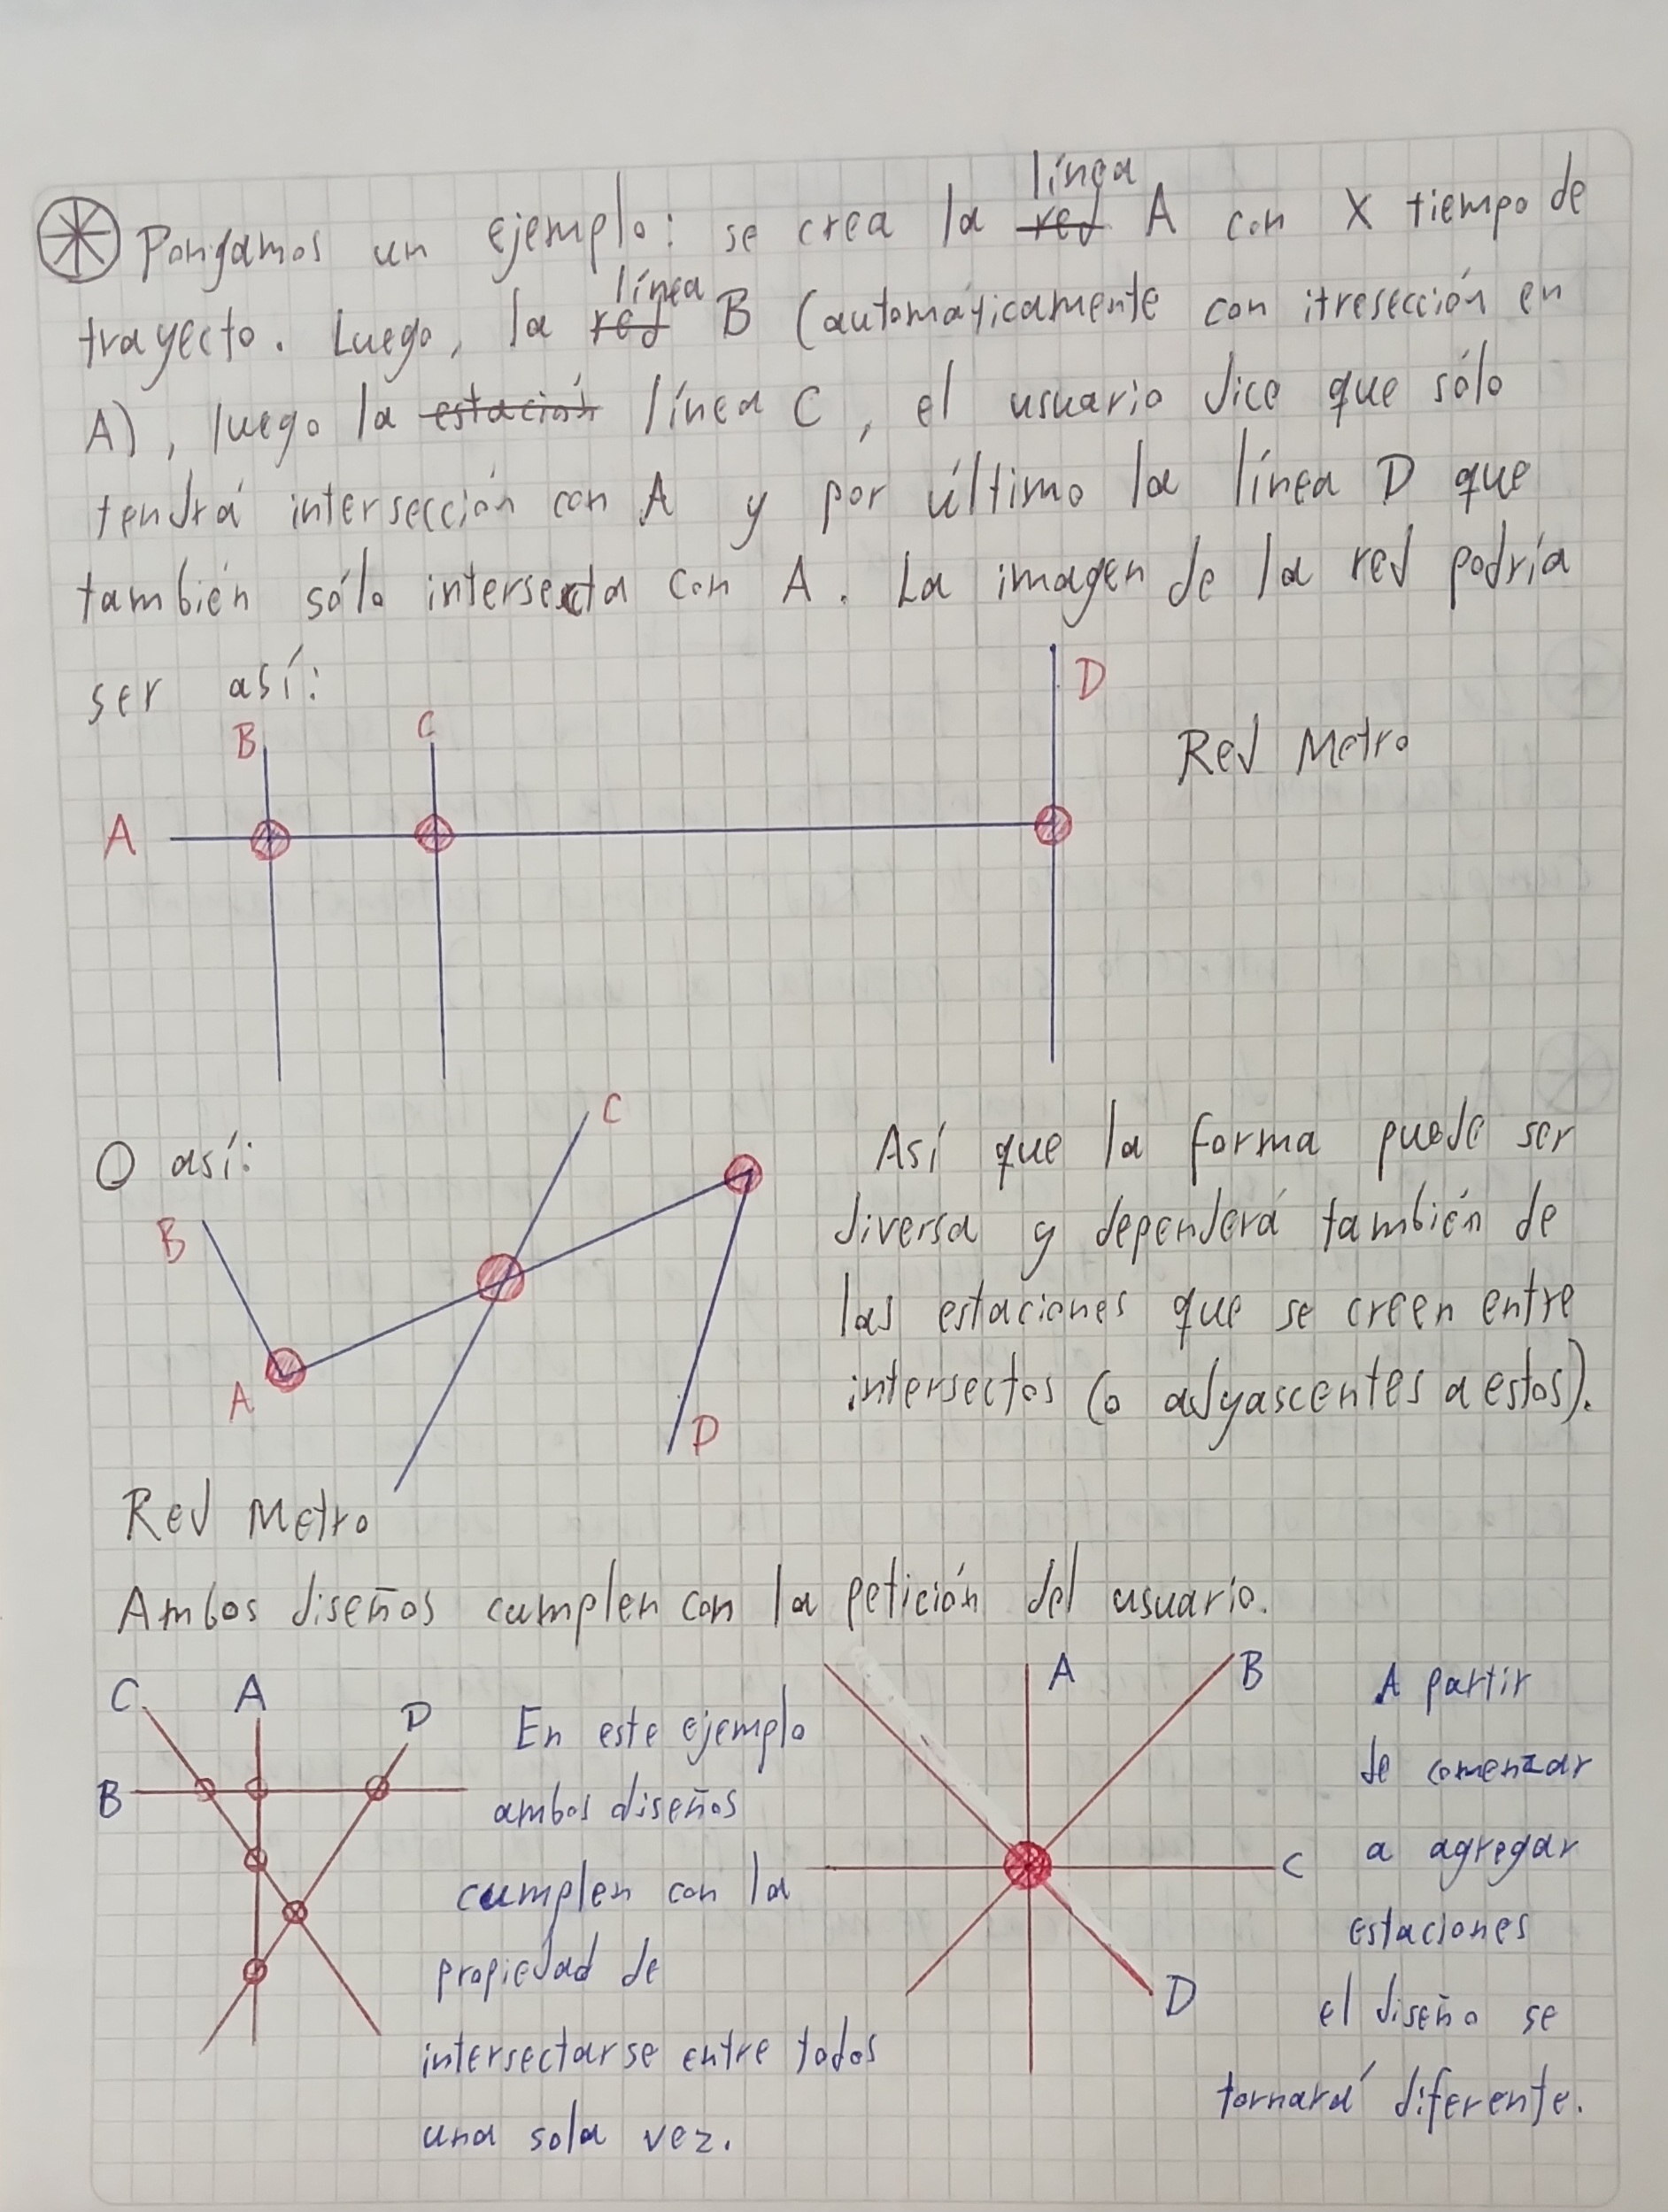 Pongamos un ejemplo: se crea la red línea A con X tiempo de
trayecto. Luego, la red línea B (automáticamente con itresección en
A), luego la estación línea C, el usuario dice que sólo
tendrá intersección con A y por último la línea D que
también sólo intersecta con A. La imagen de la red podría
ser así:
D
B
C
Red Metro
A
O así:
C
B
A
D
Así que la forma puede ser
diversa y dependerá también de
las estaciones que se creen entre
intersectos (o adyascentes a estos).
Red Metro
Ambos diseños cumplen con la petición del usuario.
C A D
B
En este ejemplo
ambos diseños
cumplen con la
propiedad de
intersectarse entre todos
una sola vez.
A
B
C
D
A partir
de comenzar
a agregar
estaciones
el diseño se
tornará diferente.